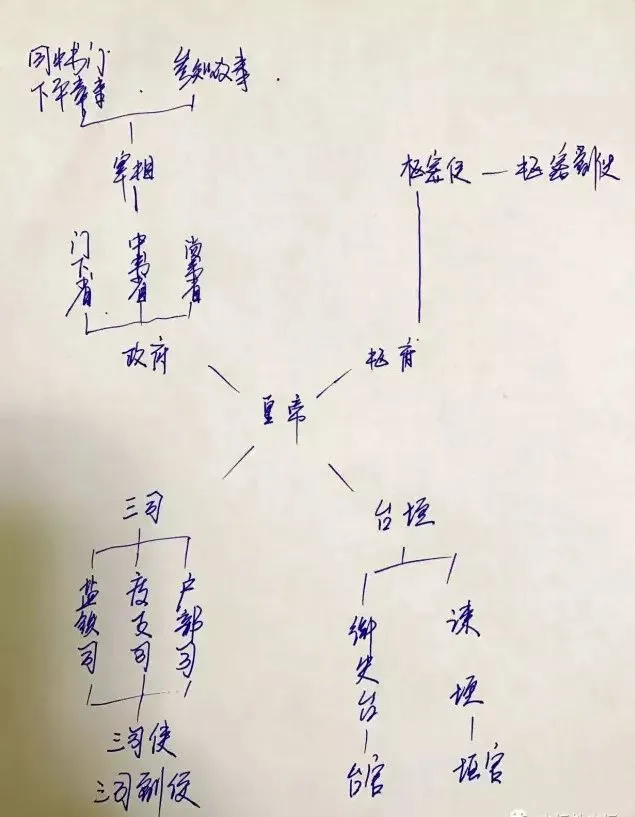 同中书门
下平章事
参知政事
宰相
门下省
中书省
尚书省
政府
枢密使
枢密副使
枢府
皇帝
三司
盐铁司
度支司
户部司
三司使
三司副使
台垣
御史台
台官
谏垣
垣官